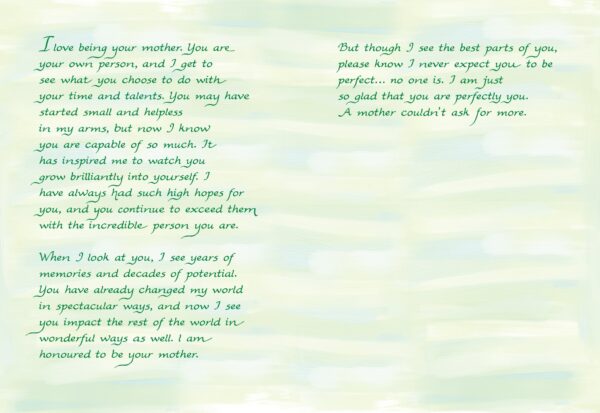 I love being your mother. You are
your own person, and I get to
see what you choose to do with
your time and talents. You may have
started small and helpless
in my arms, but now I know
you are capable of so much. It
has inspired me to watch you
grow brilliantly into yourself. I
have always had such high hopes for
you, and you continue to exceed them
with the incredible person you are.
When I look at you, I see years of
memories and decades of potential.
You have already changed my world
in spectacular ways, and now I see
you impact the rest of the world in
wonderful ways as well. I am
honoured to be your mother.
But though I see the best parts of you,
please know I never expect you to be
perfect... no one is. I am just
so glad that you are perfectly you.
A mother couldn't ask for more.